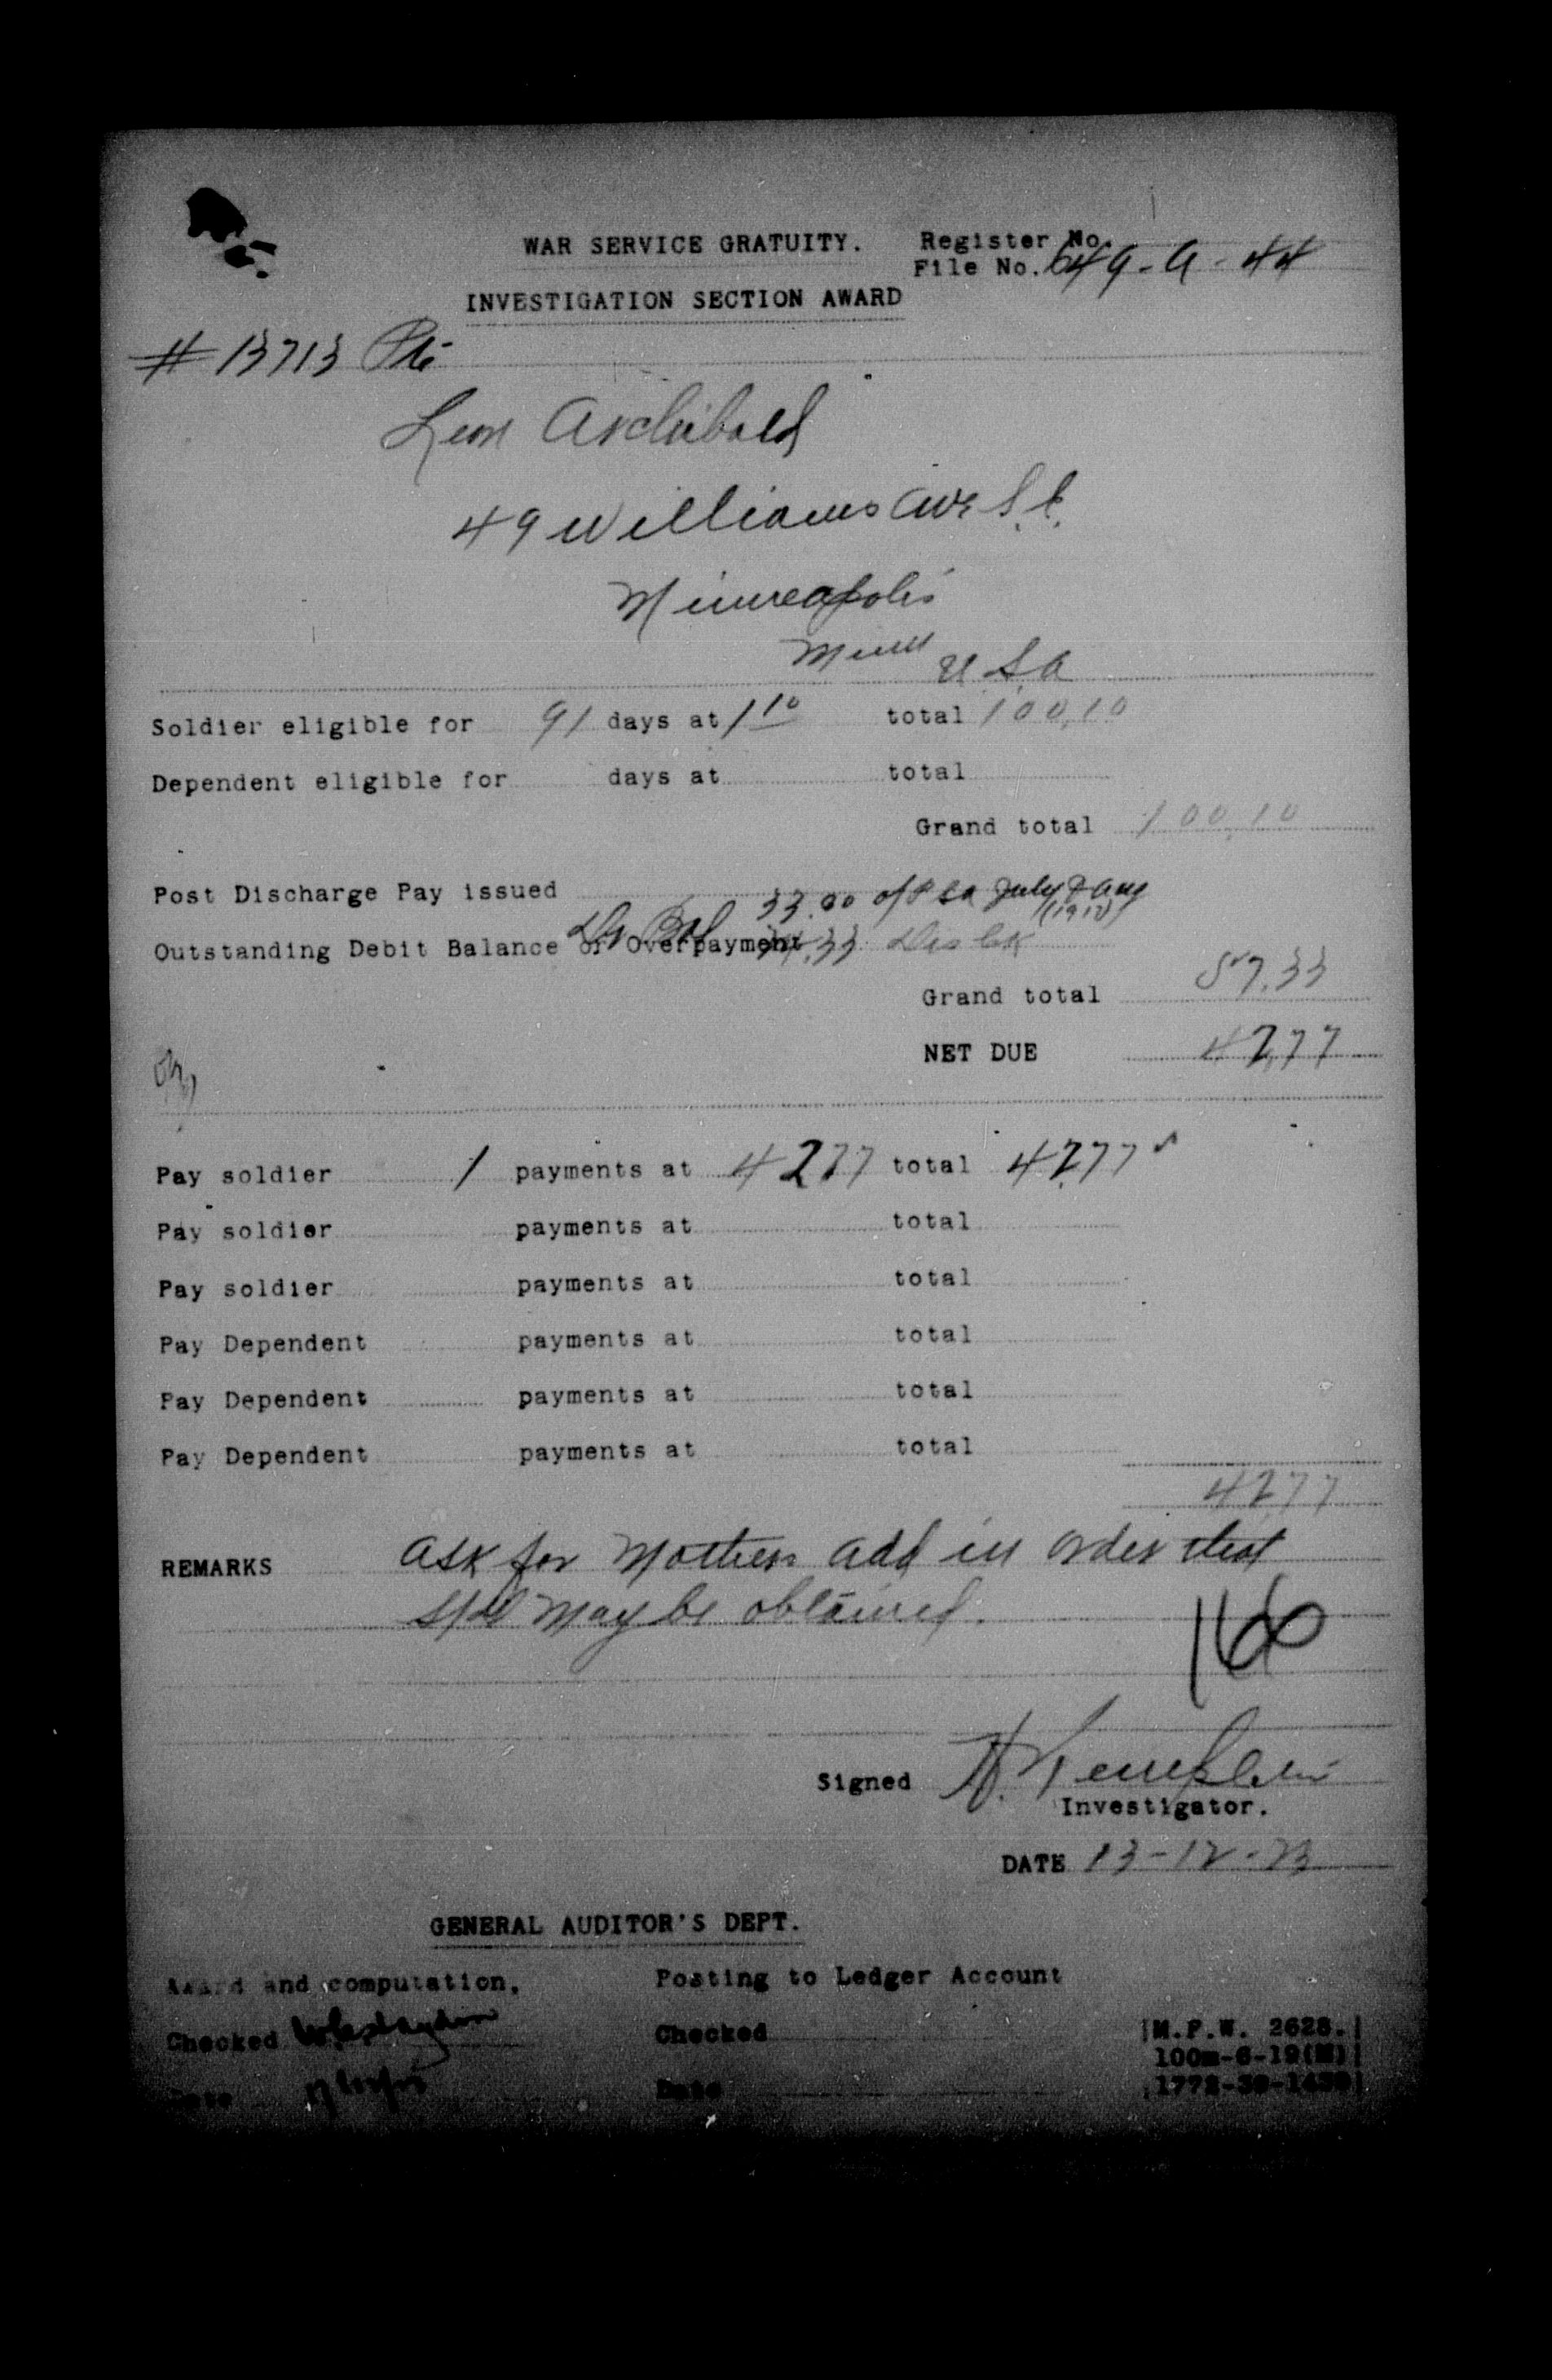 WAR SERVICE GRATUITY. Register No.
File No. 649-A-44
INVESTIGATION SECTION AWARD
# 13713 Pte
Leon Archibald
49 Williams Ave S.E.
Minneapolis
Minn USA
Soldier eligible for 91 days at 1 10 total 100.10
Dependent eligible for days at total
Grand total 100.10
Post Discharge Pay issued 33.00 July & Aug
Outstanding Debit Balance or Overpayment Dr Bal 24.33
Grand total 57.33
NET DUE 42.77
Pay soldier 1 payments at 42 77 total 42.77
Pay soldier payments at total
Pay soldier payments at total
Pay Dependent payments at total
Pay Dependent payments at total
Pay Dependent payments at total
42.77
REMARKS Ask for Mothers add in order that
may be obtained.
160
Signed
Investigator.
DATE 13-12-23
GENERAL AUDITOR'S DEPT.
Award and computation, Posting to Ledger Account
Checked Checked
Date Date
M.F.W. 2628.
100m-6-19(M)
1772-39-1439